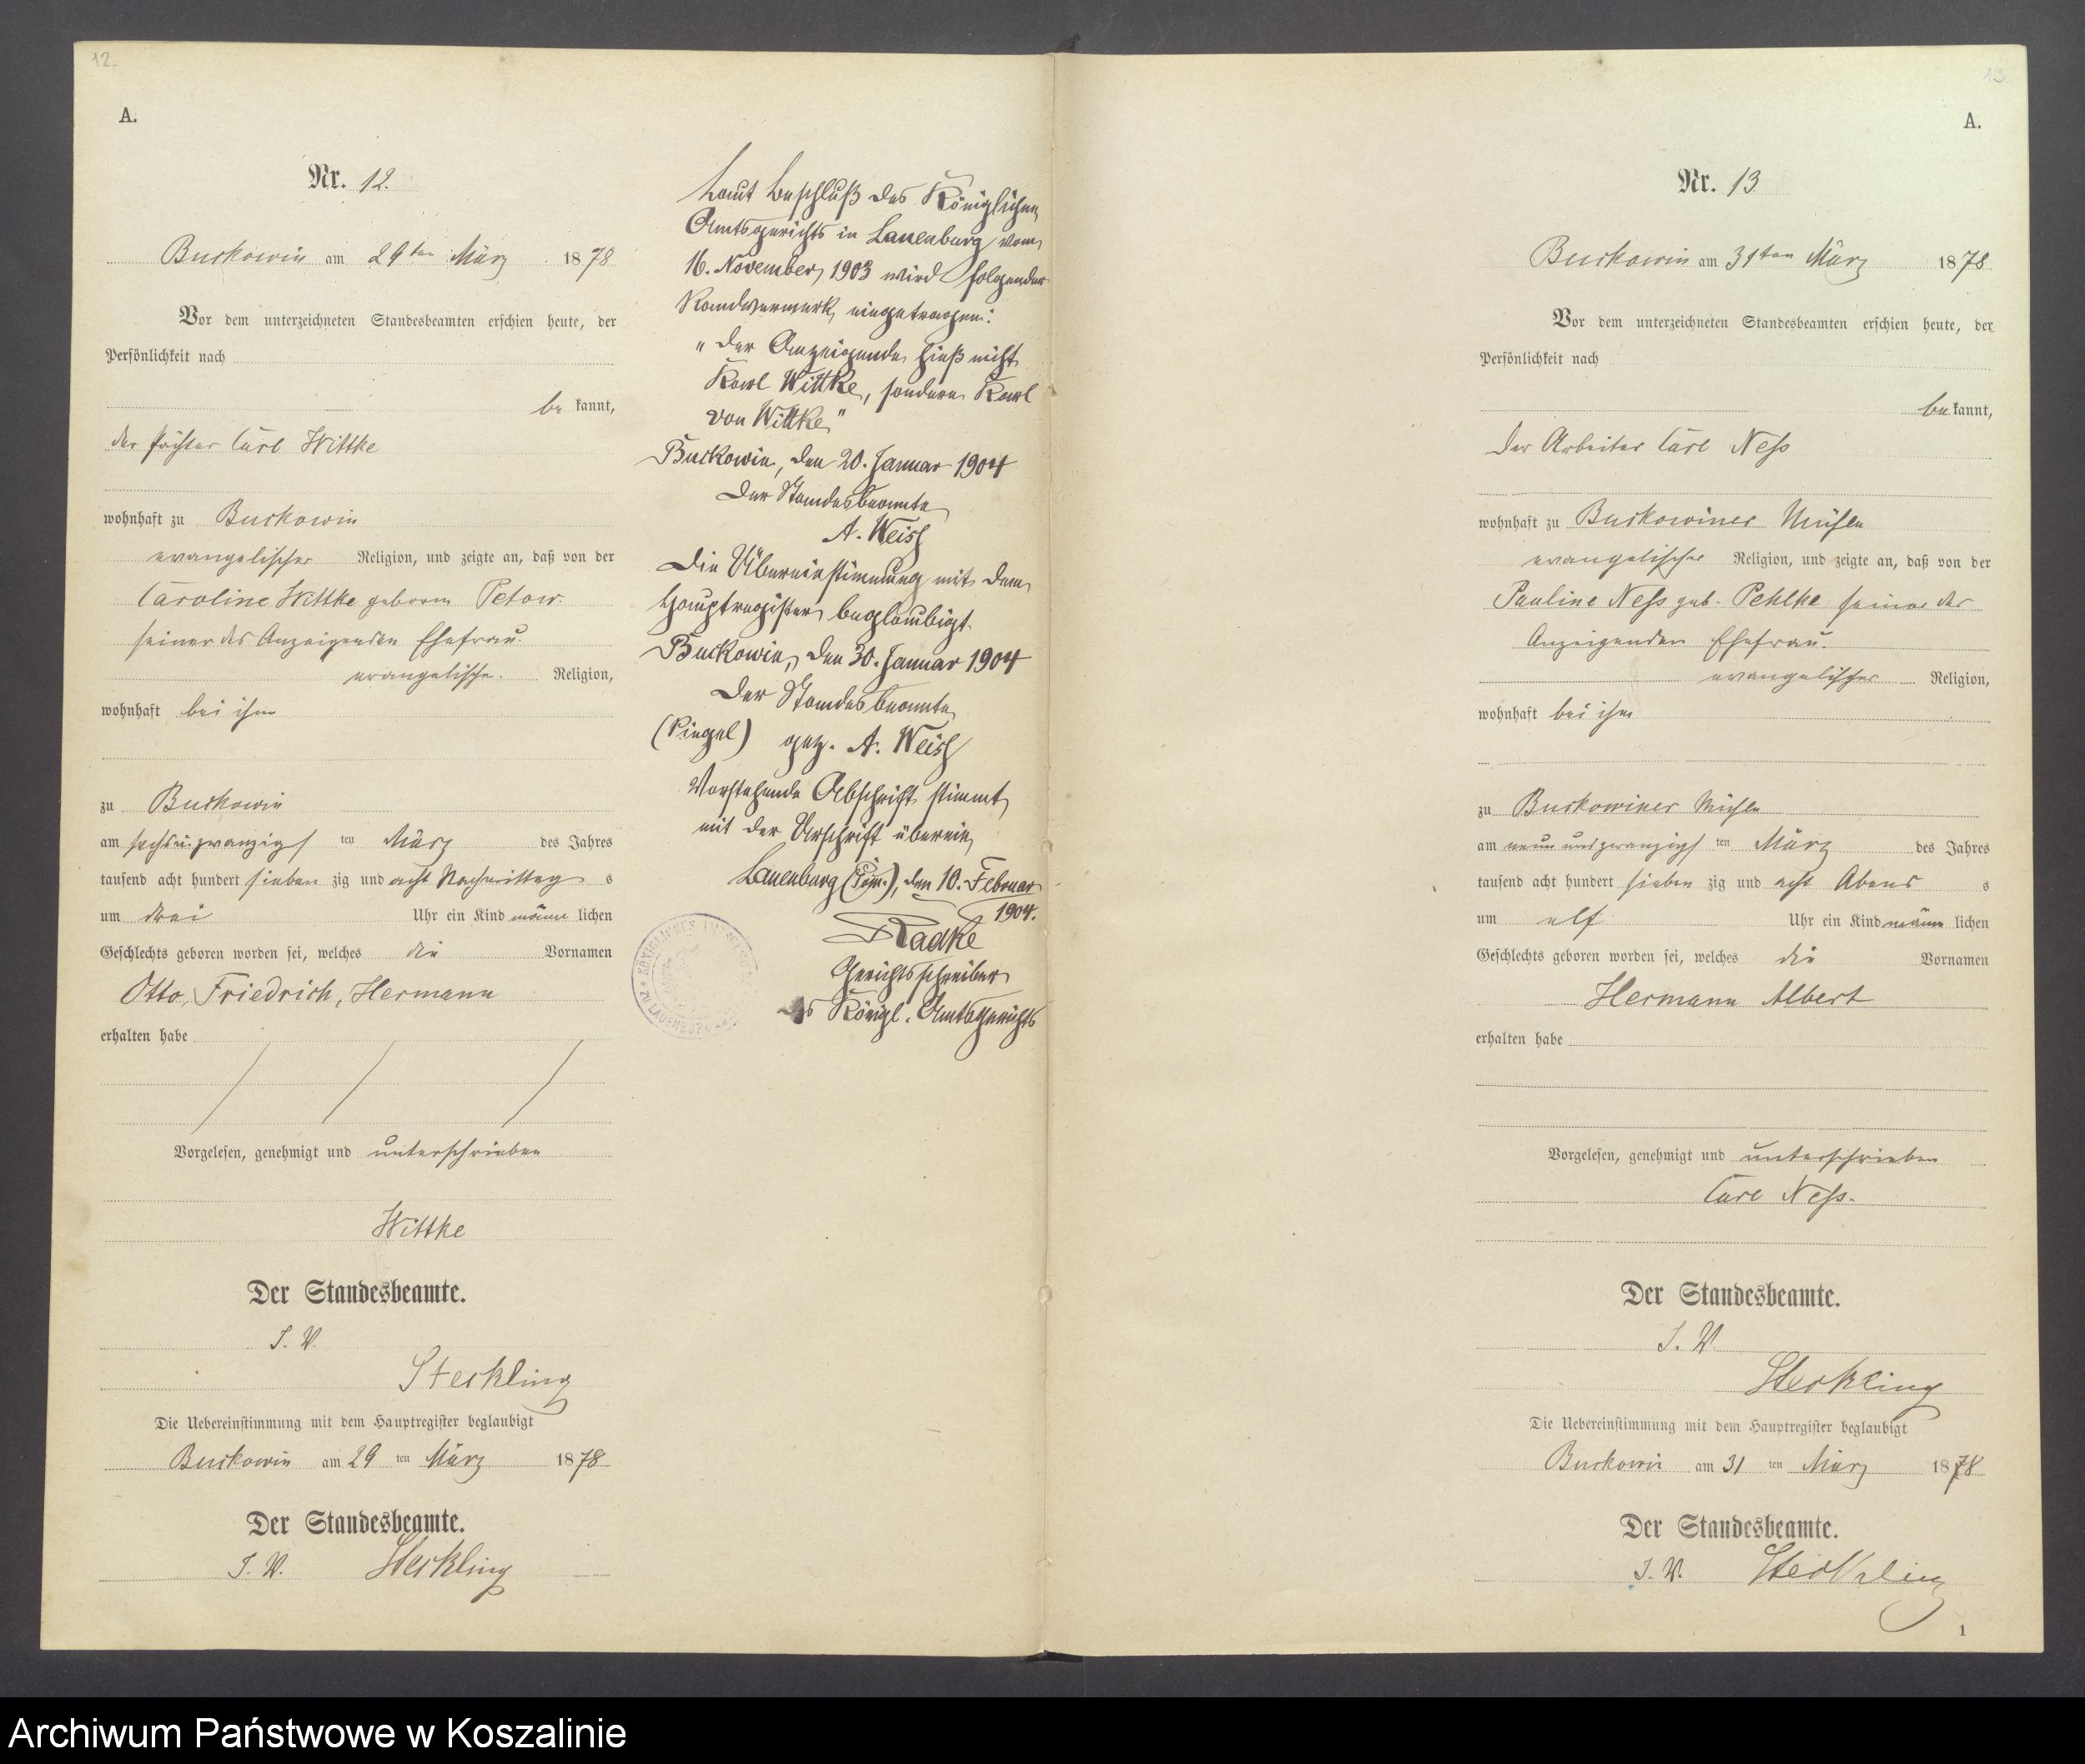 12.
A.
Nr. 12.
Buckowin am 29ten März 1878
Vor dem unterzeichneten Standesbeamten erschien heute, der
Persönlichkeit nach
be kannt,
der Pächter Carl Wittke
wohnhaft zu Buckowin
evangelischer Religion, und zeigte an, daß von der
Caroline Wittke geboren Petow.
seiner des Anzeigenden Ehefrau.
evangelische. Religion,
wohnhaft bei ihm
zu Buckowin
am sechs u. zwanzigs ten März des Jahres
tausend acht hundert sieben zig und acht Nachmittag s
um drei Uhr ein Kind männ lichen
Geschlechts geboren worden sei, welches die Vornamen
Otto, Friedrich, Hermann
erhalten habe
Vorgelesen, genehmigt und unterschrieben
Wittke
Der Standesbeamte.
J. V.
Steckling
Die Uebereinstimmung mit dem Hauptregister beglaubigt
Buckowin am 29 ten März 1878
Der Standesbeamte.
J. V. Steckling
Laut Beschluß des Königlichen
Amtsgerichts in Lauenburg vom
16. November 1903 wird folgender
Randvermerk eingetragen:
"Der Anzeigende hieß nicht
Karl Wittke, sondern Karl
von Wittke"
Buckowin, den 20. Januar 1904
Der Standesbeamte
A. Weiß
Die Übereinstimmung mit dem
Hauptregister beglaubigt.
Buckowin, den 30. Januar 1904
Der Standesbeamte
(Siegel) gez. A. Weiß
Vorstehende Abschrift stimmt
mit der Urschrift überein
Lauenburg (Pom.), den 10. Februar
1904.
Radke
Gerichtsschreiber
des Königl. Amtsgerichts
13.
A.
Nr. 13
Buckowin am 31ten März 1878
Vor dem unterzeichneten Standesbeamten erschien heute, der
Persönlichkeit nach
be kannt,
der Arbeiter Carl Ness
wohnhaft zu Buckowiner Mühle
evangelischer Religion, und zeigte an, daß von der
Pauline Ness geb. Pehlke seiner des
Anzeigenden Ehefrau.
evangelischer Religion,
wohnhaft bei ihm
zu Buckowiner Mühle
am neun und zwanzigs ten März des Jahres
tausend acht hundert sieben zig und acht Abend s
um elf Uhr ein Kind männ lichen
Geschlechts geboren worden sei, welches die Vornamen
Hermann Albert
erhalten habe
Vorgelesen, genehmigt und unterschrieben
Carl Ness.
Der Standesbeamte.
J. V.
Steckling
Die Uebereinstimmung mit dem Hauptregister beglaubigt
Buckowin am 31 ten März 1878
Der Standesbeamte.
J. V. Steckling
1
Archiwum Państwowe w Koszalinie